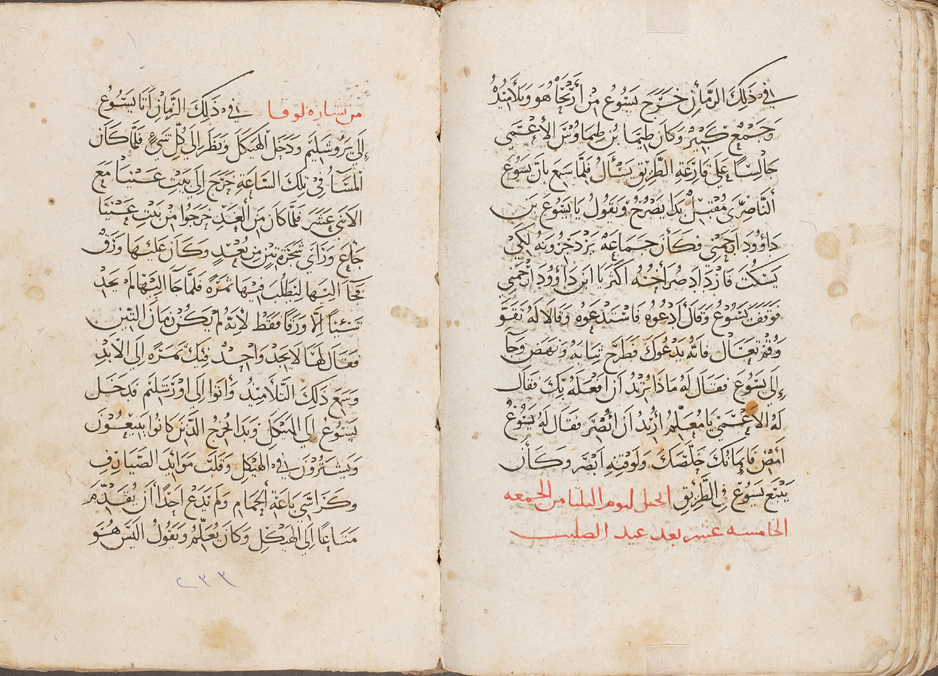 في ذلك الزمان خرج يسوع من أريحا هو وتلاميذه
وجمع كبير وكان طيما بن طيماوس الأعمى
جالسًا على قارعة الطريق يسأل فلما سمع بان يسوع
الناصري مقبل بدا يصرخ ويقول يا يسوع بن
داوود ارحمني وكان جماعة يزدجرونه لكي
يسكت فازداد صراخه اكثر يا ابن داوود ارحمني
فوقف يسوع وقال ادعوه فاستدعوه وقالا له تقو
وقم تعال فانه يدعوك فطرح ثيابه ونهض وجا
إلى يسوع فقال له ماذا تريد ان افعله بك فقال
له الأعمى يا معلم اريد ان أبصر فقال له يسوع
امض فايمانك خلصك ولوقته ابصر وكان
يتبع يسوع في الطريق الحمل ليوم الثلثا من الجمعه
الخامسه عشر بعد عيد الصليب
من بشاره لوقا في ذلك الزمان أتا يسوع
إلى يروشليم ودخل الهيكل ونظر إلى كل شيء فلما كان
المسا في تلك الساعة خرج إلى بيت عنيا مع
الاثني عشر فلما كان من الغد خرجوا من بيت عنيا
جاع وراي شجرة تين من بعيد وكان عليها ورق
فجا اليها ليطلب فيها ثمره فلما جا اليها لم يجد
شيئًا الا ورقًا فقط لانه لم يكن زمان التين
فقال لها لا يجد واحد منك ثمره إلى الأبد
وسمع ذلك التلاميذ واتوا إلى اورشليم فدخل
يسوع إلى الهيكل وبدا يخرج الذين كانوا يبيعون
ويشترون في الهيكل وقلب موايد الصيارف
وكراسي باعة الحمام ولم يدع احدًا أن يقدم
متاعًا إلى الهيكل وكان يعلم ويقول اليس هو
٢٣٣